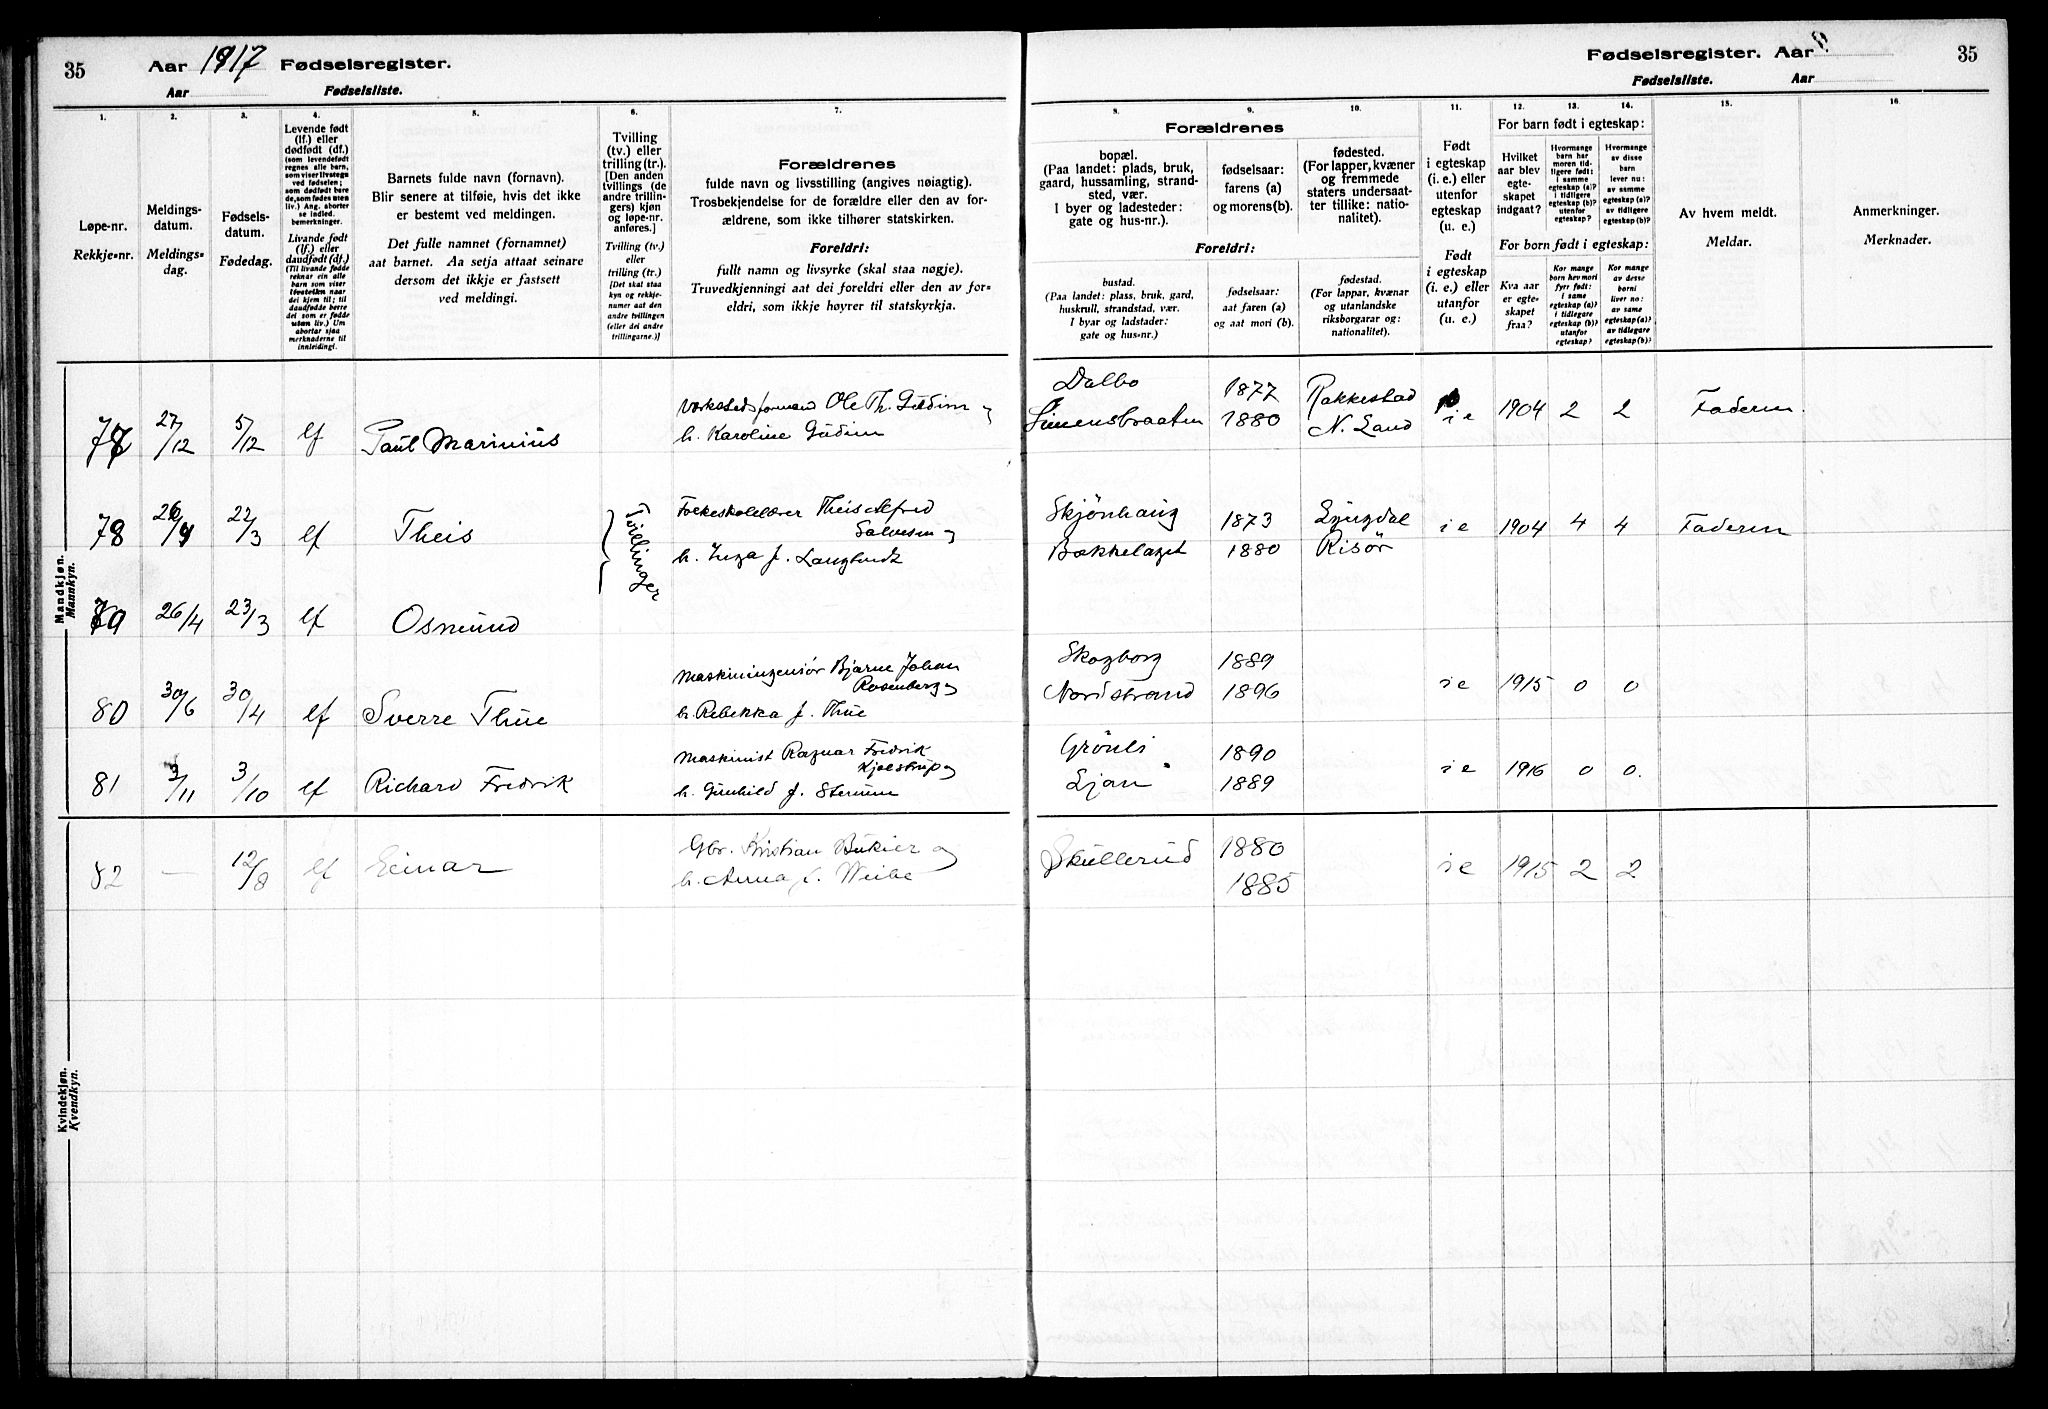 35
Aar 1917 Fødselsregister.
Aar Fødselsliste.
1.
2.
3.
4.
5.
6.
7.
Løpe-nr.
Rekkje-nr.
Meldings-
datum.
Meldings-
dag.
Fødsels-
datum.
Fødedag.
Levende født
(lf.) eller
dødfødt (df.)
(som levendefødt
regnes alle barn,
som viser livstegn
ved fødselen;
som dødfødt bare
de, som fødes uten
liv.) Ang. aborter
se indled.
bemerkninger.
Livande født
(lf.) eller
daudfødt (df.)
(Til livande fødde
reknar ein alle
barn som viser
livsteikn naar
dei kjem til; til
daudfødde berre
dei som er fødde
utan liv.) Um
abortar sjaa
merknaderne til
innleidingi.
Barnets fulde navn (fornavn).
Blir senere at tilføie, hvis det ikke
er bestemt ved meldingen.
Det fulle namnet (fornamnet)
aat barnet. Aa setja attaat seinare
dersom det ikkje er fastsett
ved meldingi.
Tvilling
(tv.) eller
trilling (tr.)
[Den anden
tvillings (de
andre trillin-
gers) kjøn
og løpe-nr.
anføres.]
Tvilling (tv.)
eller
trilling (tr.)
[Det skal staa
kyn og rekkje-
numer aat den
andre tvillingen
(eller dei andre
trillingarne.)]
Forældrenes
fulde navn og livsstilling (angives nøiagtig).
Trosbekjendelse for de forældre eller den av for-
ældrene, som ikke tilhører statskirken.
Foreldri:
fullt namn og livsyrke (skal staa nøgje).
Truvedkjenningi aat dei foreldri eller den av for-
eldri, som ikkje høyrer til statskyrkja.
Mandkjøn.
Mannkyn.
77 27/12 5/12 lf Paul Marinius Verkstedsformand Ole Th. Gudim og
h. Karoline Gudim
78 26/4 22/3 lf Theis Tvillinger Folkeskolelærer Theis Alfred
Salvesen og
h. Inga f.
79 26/4 23/3 lf Osmund
80 30/6 30/4 lf Sverre Thue Maskiningeniør Bjarne Johan
Rosenberg og
h. Rebekka f. Thue
81 3/11 3/10 lf Richard Fredrik Maskinist Ragnar Fredrik
Kjølstrup og
h. Gunhild f.
82 — 12/8 lf Einar Gbr. Kristian og
h. Anna f.
Kvindekjøn.
Kvendkyn.
Fødselsregister. Aar
35
Fødselsliste. Aar
8.
9.
10.
11.
12.
13.
14.
15.
16.
Forældrenes
bopæl.
(Paa landet: plads, bruk,
gaard, hussamling, strand-
sted, vær.
I byer og ladesteder:
gate og hus-nr.).
Foreldri:
bustad.
(Paa landet: plass, bruk, gard,
huskrull, strandstad, vær.
I byar og ladstader:
gate og hus-nr.)
fødselsaar:
farens (a)
og morens (b).
fødselsaar:
aat faren (a)
og aat mori (b).
fødested.
(For lapper, kvæner
og fremmede
staters undersaat-
ter tillike: natio-
nalitet).
fødestad.
(For lappar, kvænar
og utanlandske
riksborgarar og:
nationalitet).
Født
i egteskap
(i. e.) eller
utenfor
egteskap
(u. e.)
Født
i egteskap
(i. e.) eller
utanfor
(u. e.)
For barn født i egteskap:
Hvilket
aar blev
egte-
skapet
indgaat?
Hvormange
barn har
moren tid-
ligere født:
i samme
egteskap (a)?
i tidligere
egteskap (b)?
utenfor
egteskap?
Hvormange
av disse
barn
lever nu:
av samme
egteskap (a)?
av tidligere
egteskap (b)?
For born født i egteskap:
Kva aar
er egte-
skapet
fraa?
Kor mange
born hev mori
fyrr født:
i same
egteskap (a)?
i tidlegare
egteskap (b)?
utanfor
egteskap?
Kor mange
av desse
borni
liver no:
av same
egteskap (a)?
av tidlegare
egteskap (b)?
Av hvem meldt.
Meldar.
Anmerkninger.
Merknader.
Dalbo 1877 Rakkestad i e 1904 2 2 Faderen.
Simensbraaten 1880 N. Land
Skjønhaug 1873 Lyngdal i e 1904 4 4 Faderen
Bækkelaget 1880 Risør
Skogborg 1889
Nordstrand 1896 i e 1915 0 0
Grønli 1890 i e 1916 0 0.
Ljan 1889
Skullerud 1880 i e 1915 2 2
1885